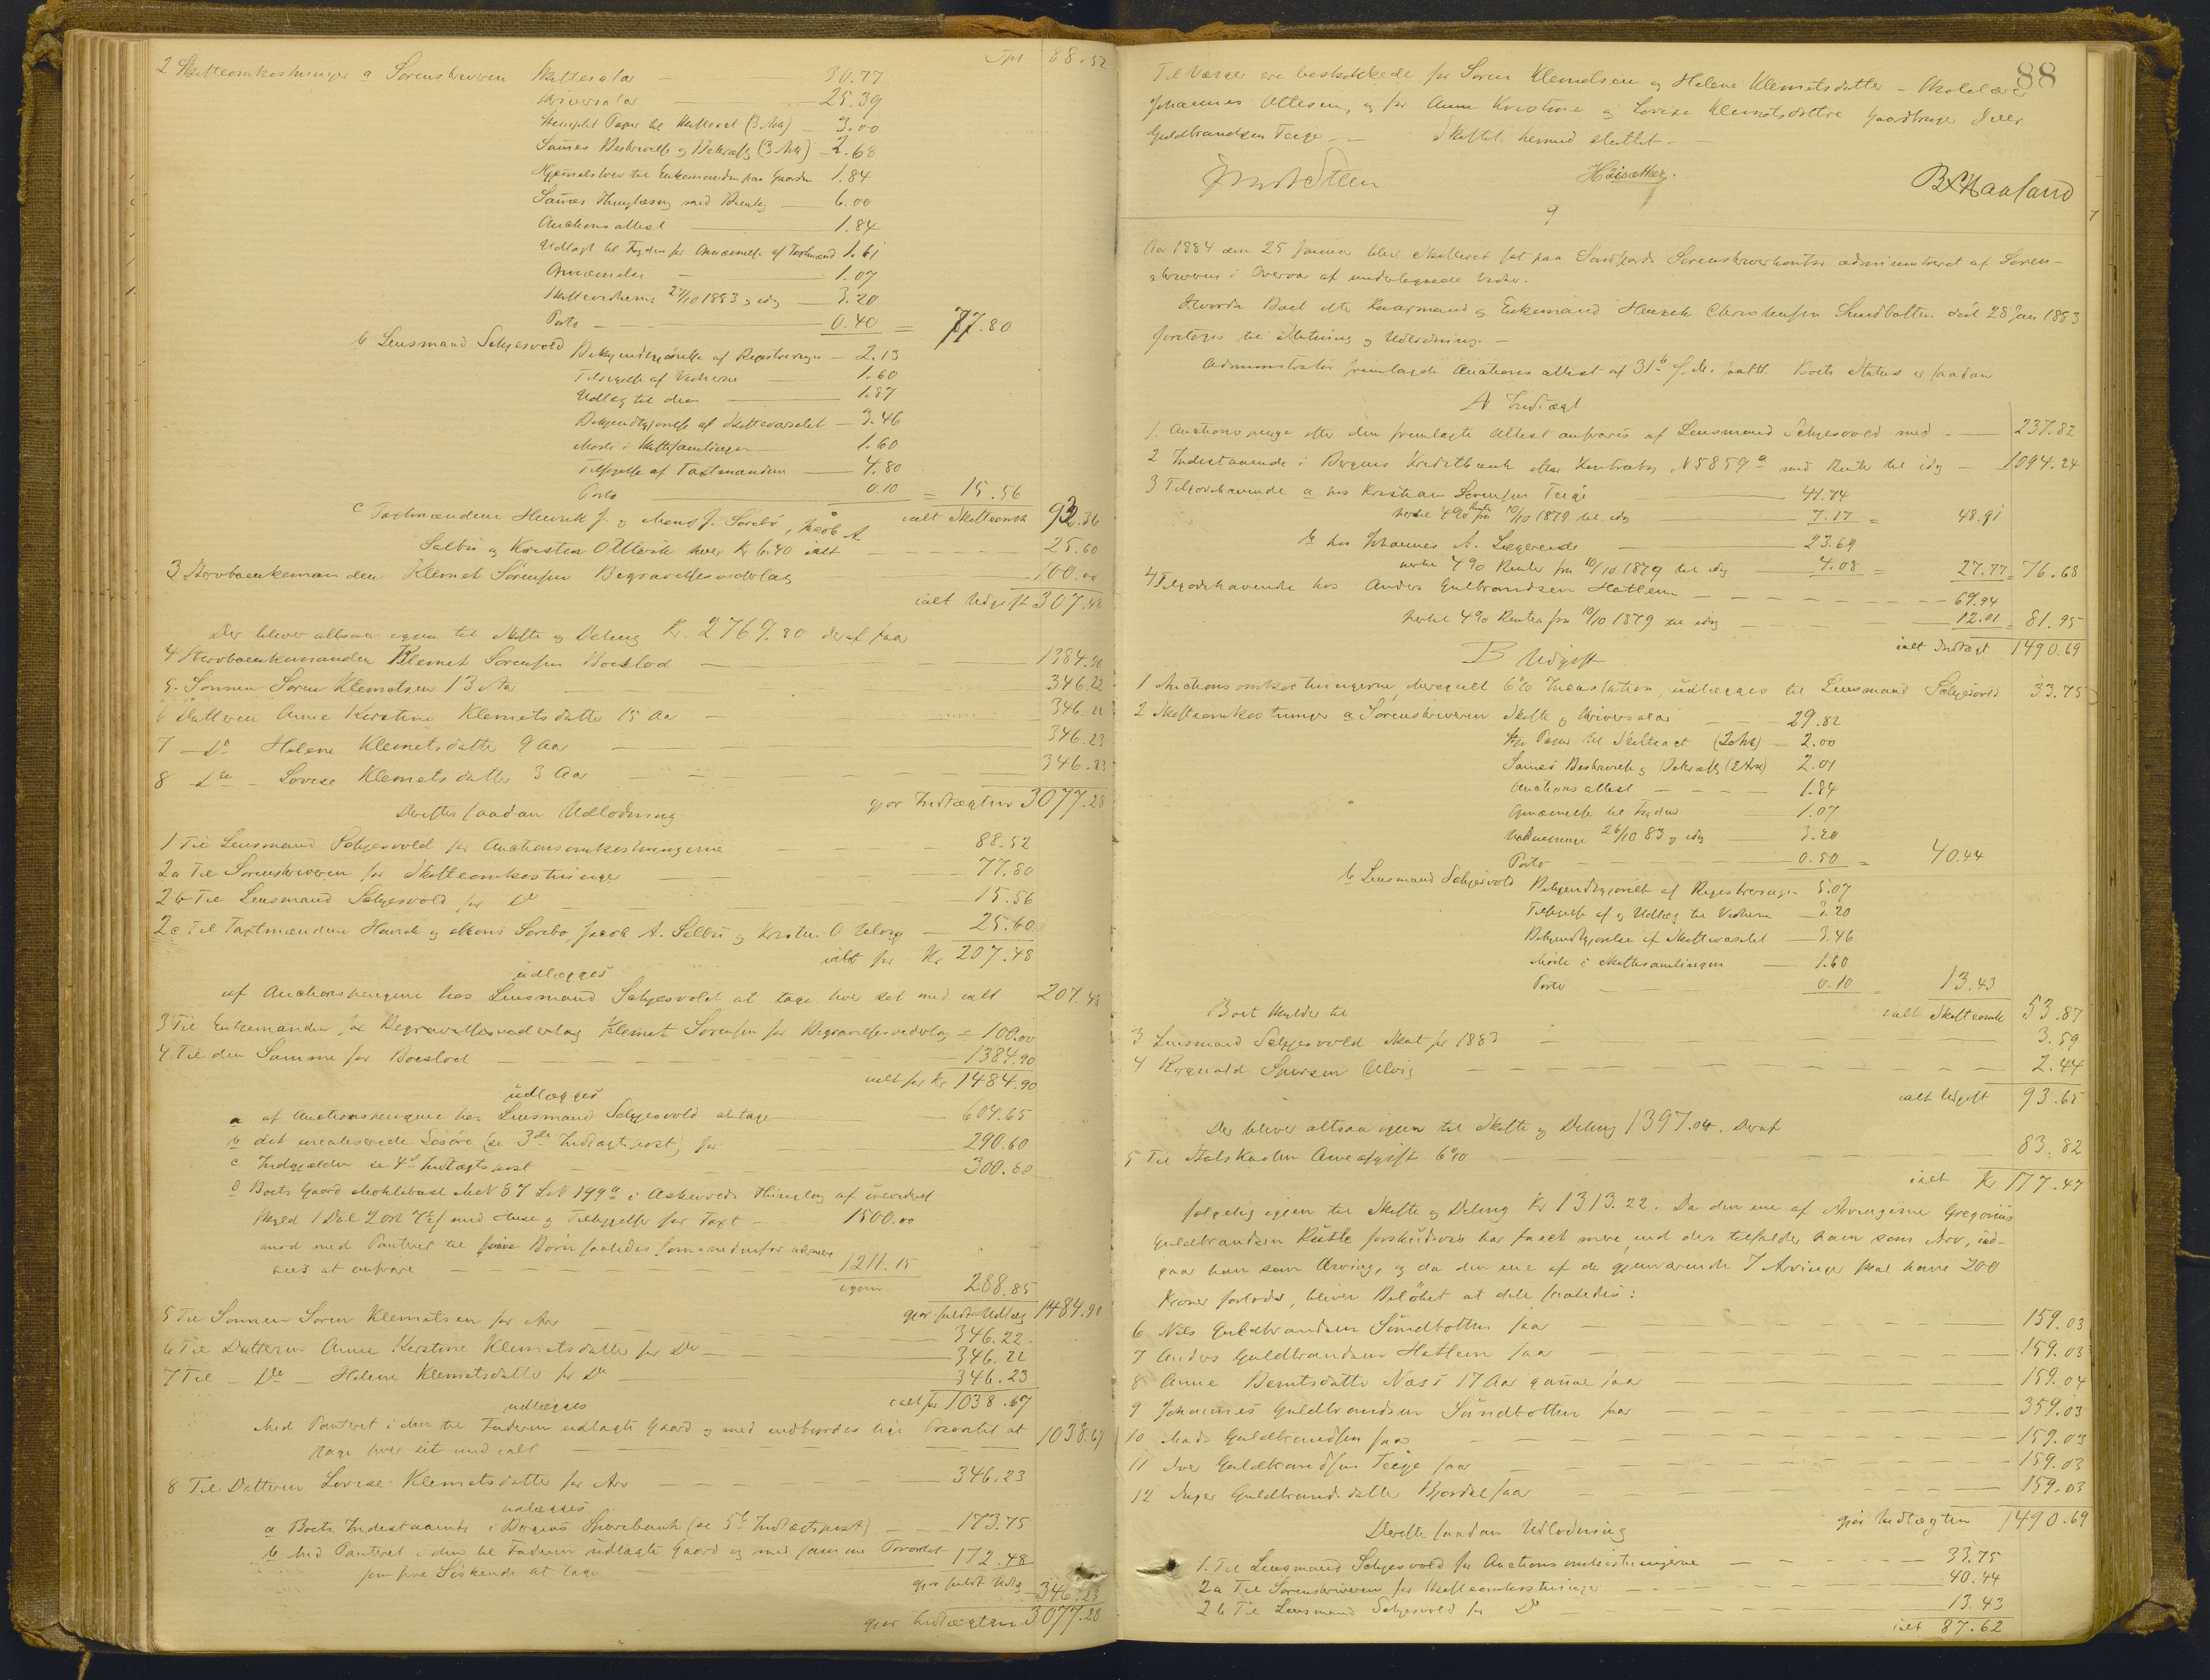 Tpt 88.52
2 Skifteomkostninger a Sorenskriveren Skiftesalar — 30.77
Skriversalar — 25.39
Stemplet Papir til Skifteact (3 Ark) — 3.00
Sammes Beskrivelse og Bekræft (3 Ark) — 2.68
Hjemmelsbrev til Enkemanden paa Gaarden 1.84
Sammes Thinglæsning med — 6.00
Auctionsattest — 1.84
Udlagt til Fogden for Opnævnelse af Taxtmænd 1.61
Opnævnelse — 1.07
Skiftevidnerne 27/10 1883 og idag — 3.20
Porto — 0.40 = 77.80
b Lensmand Selgesvold Bekjendtgjørelse af Registreringen — 2.13
Tilsigelse af Vidnerne — 1.60
Udlæg til dem — 1.87
Bekjendtgjørelse af Skiftevarselet — 3.46
Møde i Skiftesamlingen — 1.60
Tilsigelse af Taxtmændene — 4.80
Porto — 0.10 = 15.56
ialt Skifteomk 93.36
c Taxtmændene Henrik J. og Mons J. Sørebø, Jacob A.
Selbu og Kristen O Ulvik hver Kr 6.40 ialt — 25.60
3 Stervboenkemanden Klemet Sørensen Begravelsesvederlag — 100.00
ialt Udgift 307.48
Der bliver altsaa igjen til Skifte og Deling Kr. 2769.80 deraf faar
4 Stervboenkemanden Klemet Sørensen Boeslod — 1384.90
5. Sønnen Søren Klemetsen 13 Aar — 346.22
6 Datteren Anne Kirstine Klemetsdatter 15 Aar — 346.22
7 — Do Helene Klemetsdatter 9 Aar — 346.23
8 Do — Lovise Klemetsdatter 3 Aar — 346.23
gjør Indtægten 3077.28
Derefter saadan Udlodning
1 Til Lensmand Selgesvold for Auctionsomkostningerne — 88.52
2a Til Sorenskriveren for Skifteomkostninger — 77.80
2b Til Lensmand Selgesvold for Do — 15.56
2c Til Taxtmændene Henrik og Mons Sørebø, Jacob A. Selbu og Kristen O Ulvig — 25.60
ialt for Kr 207.48
udlægges
af Auctionspengene hos Lensmand Selgesvold at tage hver sit med ialt 207.48
3 Til Enkemanden for Begravelsesvederlag Klemet Sørensen for Begravelsesvederlag — 100.00
4 Til den Samme for Boeslod — 1384.90
ialt for Kr 1484.90
udlægges
a af Auctionspengene hos Lensmand Selgesvold at tage — 604.65
b det urealiserede Løsøre (se 3die Indtægtspost) for — 290.60
c Indgjælden se 4de Indtægtspost — 300.80
d Boets Gaard MN 87 LN 199a i Askevolds Thinglag af urevideret
Skyld 1 Dal 2 ort 7 med Huse og Tilliggelser for Taxt — 1500.00
mod med Panteret til fire Børn saaledes som nedenfor nærmere
sees at udrede — 1211.15
igjen 288.85
gjør fuldt Udlæg 1484.90
5 Til Sønnen Søren Klemetsen for Arv — 346.22
6 Til Datteren Anne Kirstine Klemetsdatter for Do — 346.22
7 Til — Do — Helene Klemetsdatter for Do — 346.23
ialt for 1038.67
udlægges
Med Panteret i den til Faderen udlagte Gaard og med indbyrdes lige Prioritet at
tage hver sit med ialt — 1038.67
8 Til Datteren Lovise Klemetsdatter for Arv — 346.23
udlægges
a Boets Indestaaende i Bergens Sparebank (se 5te Indtægtspost) — 173.75
b Med Panteret i den til Faderen udlagte Gaard og med samme Prioritet
som fire Søskende at tage — 172.48
gjør fuldt Udlæg 346.23
gjør Indtægten 3077.28
88
Til Værger ere beskikkede for Søren Klemetsen og Helene Klemetsdatter — Skolelærer
Johannes Ottesen, og for Anne Kirstine og Lovise Klemetsdøttre Gaardbruger Iver
Guldbrandsen Teige — Skiftet hermed sluttet. —
Steen Høisæther.
9
Aar 1884 den 25 Januar blev Skifteret sat paa Søndfjords Sorenskriverkontor administreret af Soren-
skriveren i Overvær af undertegnede Vidner.
Hvorda Boet efter Kaarmand og Enkemand Henrik Christensen Sundbotten død 28 Jan 1883
foretoges til Slutning og Udlodning. —
Administrator fremlagde Auctionsattest af 31te f. M. saalt. Boets Status er saadan
A Indtægt
1. Auctionspenge efter den fremlagte Attest ansvares af Lensmand Selgesvold med — 237.82
2 Indestaaende i Bergens Kreditbank efter Kontrabog N 5859a med Renter til idag — 1094.24
3 Tilgodehavende a hos Kristian Sørensen Teige — 41.74
hertil 4% Renter fra 10/10 1879 til idag — 7.17 = 48.91
b hos Johannes A. — 23.69
hertil 4% Renter fra 10/10 1879 til idag — 4.08 = 27.77 = 76.68
4 Tilgodehavende hos Anders Gulbrandsen Hatlem — 69.94
hertil 4% Renter fra 10/10 1879 til idag — 12.01 = 81.95
ialt Indtægt 1490.69
B Udgift
1 Auctionsomkostningerne, beregnet 6% Incasation, udlægges til Lensmand Selgesvold 33.75
2 Skifteomkostninger a Sorenskriveren Skifte og Skriversalar — 29.82
St. Papir til Skifteact (2 Ark) — 2.00
Sammes Beskrivelse og Bekræft (2 Ark) 2.01
Auctionsattest — 1.84
Opnævnelse til Fogden 1.07
Vidnerne 26/10 83 og idag — 3.20
Porto — 0.50 = 40.44
b Lensmand Selgesvold Bekjendtgjørelse af Registreringen 5.07
Tilsigelse af og Udlæg til Vidnerne — 3.20
Bekjendtgjørelse af Skiftevarselet — 3.46
Møde i Skiftesamlingen — 1.60
Porto — 0.10 13.43
ialt Skifteomk 53.87
Boet skylder til
3 Lensmand Selgesvold Skat for 1883 — 3.59
4 Rognald Ulvig — 2.44
ialt Udgift 93.65
Der bliver altsaa igjen til Skifte og Deling 1397.04. Deraf
5 Til Statskassen Arveafgift 6% — 83.82
ialt Kr 177.47
følgelig igjen til Skifte og Deling Kr 1313.22. Da den ene af Arvingerne Gregorius
Guldbrandsen forskudsvis har faaet mere end der tilfalder ham som Arv, ud-
gaar han som Arving, og da den ene af de gjenværende 7 Arvinger skal have 200
Kroner forlods, bliver Beløbet at dele saaledes:
6 Nils Guldbrandsen Sundbotten faar — 159.03
7 Anders Guldbrandsen Hatlem faar — 159.03
8 Anne Berntsdatter Næss 17 Aar gammel faar — 159.04
9 Johannes Guldbrandsen Sundbotten faar — 359.03
10 Mads Guldbrandsen faar — 159.03
11 Iver Guldbrandsen Teige faar — 159.03
12 Inger Guldbrandsdatter faar — 159.03
gjør Indtægten 1490.69
Derefter saadan Udlodning
1. Til Lensmand Selgesvold for Auctionsomkostningerne — 33.75
2a Til Sorenskriveren for Skifteomkostninger — 40.44
2b Til Lensmand Selgesvold for Do — 13.43
ialt 87.62